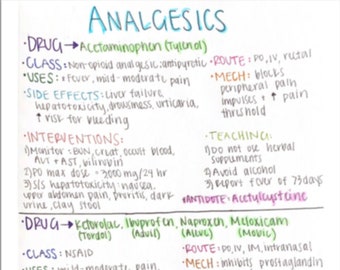 ANALGESICS
·DRUG → Acetaminophen (Tylenol)
·CLASS: Non-opioid analgesic; antipyretic
·USES: ↓Fever, mild-moderate pain
·SIDE EFFECTS: Liver failure,
hepatotoxicity, drowsiness, urticaria,
↑ risk for bleeding
·ROUTE: PO, IV, rectal
·MECH: blocks
peripheral pain
impulses + ↑ pain
threshold
·INTERVENTIONS:
1) Monitor = BUN, creat, occult blood,
ALT + AST, bilirubin
2) PO max dose = 3000 mg/24 hr
3) S/S hepatotoxicity: nausea,
upper abdomen pain, pruritis, dark
urine, clay stool
·TEACHING:
1) DO not use herbal
supplements
2) Avoid alcohol
3) Report fever of 73days
·ANTIDOTE: Acetylcysteine
·DRUG → Ketorolac, Ibuprofen, Naproxen, Meloxicam
(Tordol) (Advil) (Aleve) (Mobic)
·CLASS: NSAID
·USES: mild-moderate pain,
·ROUTE: PO, IV, IM, intranasal
·MECH: inhibits prostaglandin